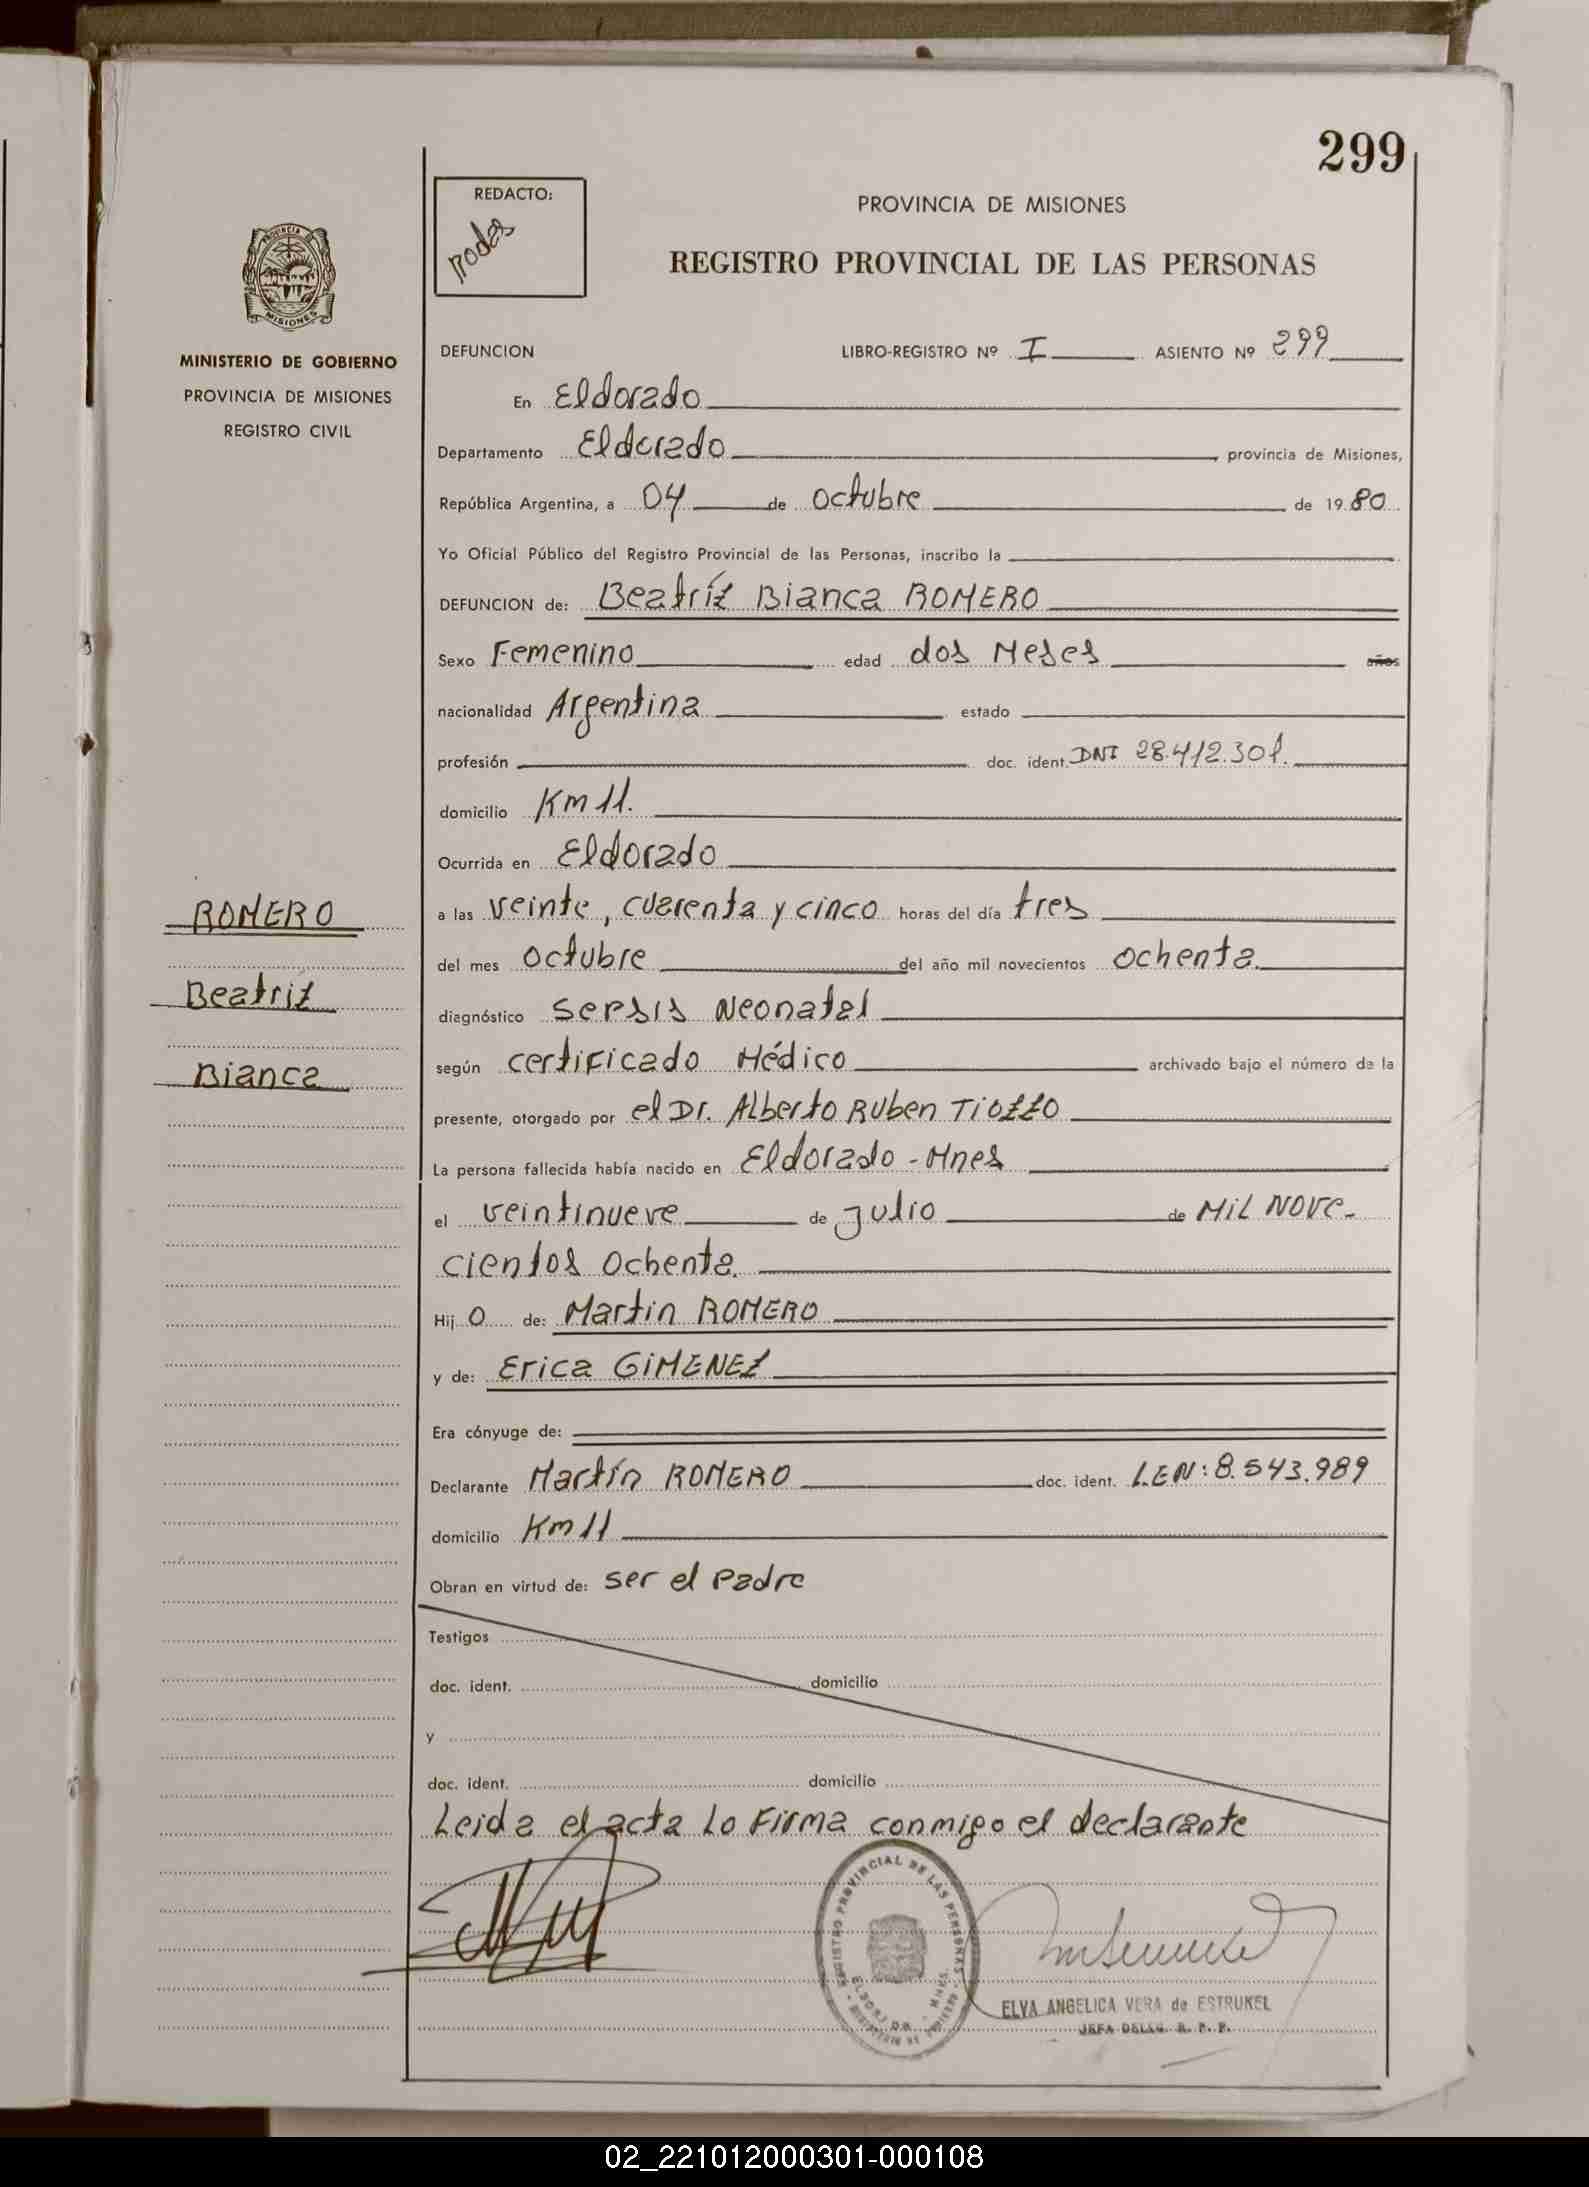 299
REDACTO:
Rodas
PROVINCIA DE MISIONES
REGISTRO PROVINCIAL DE LAS PERSONAS
PROVINCIA DE
MISIONES
MINISTERIO DE GOBIERNO
PROVINCIA DE MISIONES
REGISTRO CIVIL
DEFUNCION LIBRO-REGISTRO Nº I ASIENTO Nº 299
En Eldorado
Departamento Eldorado, provincia de Misiones,
República Argentina, a 04 de octubre de 1980
Yo Oficial Público del Registro Provincial de las Personas, inscribo la
DEFUNCION de: Beatríz Bianca ROMERO
Sexo Femenino edad dos Meses años
nacionalidad Argentina estado
profesión doc. ident. DNI 28.412.301.
domicilio Km 11.
Ocurrida en Eldorado
ROMERO
Beatriz
Bianca
a las veinte, cuarenta y cinco horas del día tres
del mes octubre del año mil novecientos ochenta
diagnóstico Sepsis Neonatal
según certificado Médico archivado bajo el número de la
presente, otorgado por el Dr. Alberto Ruben Tiozzo
La persona fallecida había nacido en Eldorado - Mnes
el veintinueve de julio de Mil Nove-
cientos ochenta.
Hij o de: Martin ROMERO
y de: Erica GIMENEZ
Era cónyuge de:
Declarante Martín ROMERO doc. ident. L.E.Nº: 8.543.989
domicilio Km 11
Obran en virtud de: ser el Padre
Testigos
doc. ident. domicilio
y
doc. ident. domicilio
Leida el acta lo Firma conmigo el declarante
REGISTRO PROVINCIAL DE LAS PERSONAS
ELVA ANGELICA VERA de ESTRUKEL
JEFA DELEG. R. P. P.
02_221012000301-000108